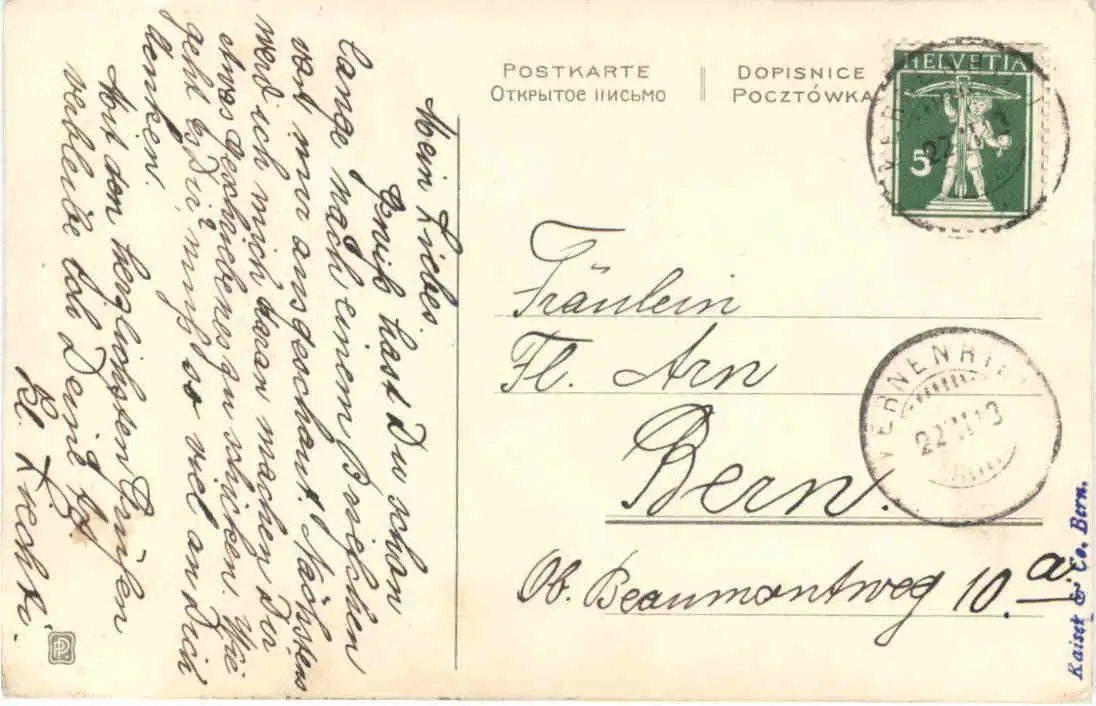 POSTKARTE
Открытое письмо
DOPISNICE
POCZTÓWKA
HELVETIA
5
Mein Liebes.
Gewiß hast Du schon
lange nach einem Briefchen
von mir ausgeschaut. Nächstens
werd ich mich daran machen Dir
etwas geschriebenes zu schicken. Wie
geht es Dir? muß so viel an Dich
denken.
Mit den herzlichsten Grüßen
verbleibe ich Deine tr.
Fräulein
Fl. Arn
Bern.
Ob. Beaumontweg 10.a.
22 13
Kaiser & Co. Bern.